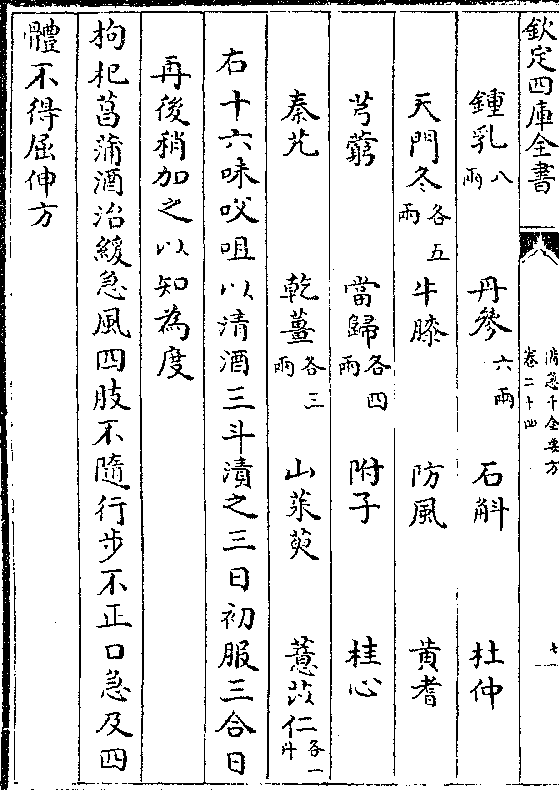 欽定四庫全書
備急千金要方
卷二十四
七
鍾乳八兩 丹參六兩 石斛 杜仲
天門冬各五兩 牛膝 防風 黄耆
芎藭 當歸各四兩 附子 桂心
秦艽 乾薑各三兩 山茱萸 薏苡仁各一升
右十六味㕮咀以清酒三斗漬之三日初服三合日
再後稍加之以知為度
枸杞菖蒲酒治緩急風四肢不隨行步不正口急及四
體不得屈伸方